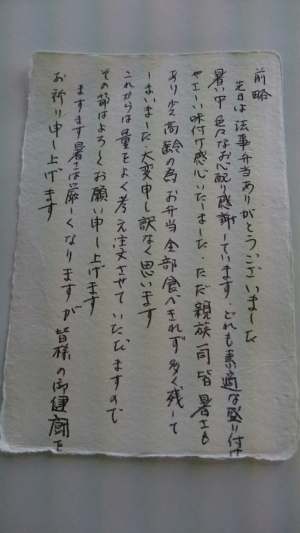 前略
先日は法事弁当ありがとうございました
暑い中色々なお心配り感謝しています.どれも素適な盛り付け
やさしい味付け感心いたしました.ただ親族一同皆暑さも
あり少々高齢の為お弁当全部食べきれず多く残して
しまいました.大変申し訳なく思います
これからは量をよく考え注文させていただきますので
その節はよろしくお願い申し上げます
ますます暑さは厳しくなりますが皆様の御健康を
お祈り申し上げます